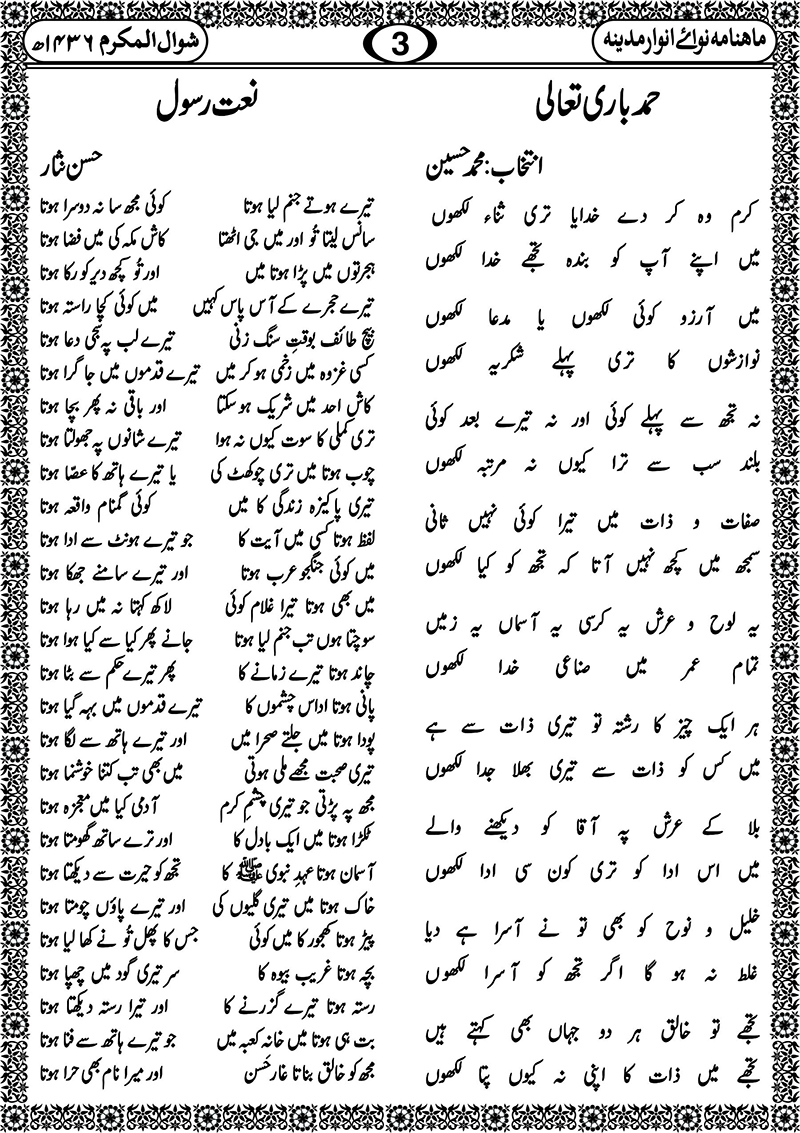 ماہنامہ نوائے انوار مدینہ
3
شوال المکرم ۱۴۳۶ھ
حمد باری تعالیٰ
انتخاب: محمد حسین
کرم وہ کر دے خدایا تری ثناء لکھوں
میں اپنے آپ کو بندہ تجھے خدا لکھوں
میں آرزو کوئی لکھوں یا مدعا لکھوں
نوازشوں کا تری پہلے شکریہ لکھوں
نہ تجھ سے پہلے کوئی اور نہ تیرے بعد کوئی
بلند سب سے ترا کیوں نہ مرتبہ لکھوں
صفات و ذات میں تیرا کوئی نہیں ثانی
سمجھ میں کچھ نہیں آتا کہ تجھ کو کیا لکھوں
یہ لوح و عرش یہ کرسی یہ آسماں یہ زمیں
تمام عمر میں صناعی خدا لکھوں
ہر ایک چیز کا رشتہ تو تیری ذات سے ہے
میں کس کو ذات سے تیری بھلا جدا لکھوں
بلا کے عرش پہ آقا کو دیکھنے والے
میں اس ادا کو تری کون سی ادا لکھوں
خلیل و نوح کو بھی تو نے آسرا ہے دیا
غلط نہ ہو گا اگر تجھ کو آسرا لکھوں
تجھے تو خالق ہر دو جہاں بھی کہتے ہیں
تجھے میں ذات کا اپنی نہ کیوں پتا لکھوں
نعت رسول
حسن نثار
تیرے ہوتے جنم لیا ہوتا کوئی مجھ سا نہ دوسرا ہوتا
سانس لیتا تُو اور میں جی اٹھتا کاش مکہ کی میں فضا ہوتا
ہجرتوں میں پڑا ہوتا میں اور تُو کچھ دیر کو رکا ہوتا
تیرے حجرے کے آس پاس کہیں میں کوئی کچا راستہ ہوتا
بیچ طائف بوقتِ سنگ زنی تیرے لب پہ سجی دعا ہوتا
کسی غزوہ میں زخمی ہو کر میں تیرے قدموں میں جا گرا ہوتا
کاش احد میں شریک ہو سکتا اور باقی نہ پھر بچا ہوتا
تری کملی کا سوت کیوں نہ ہوا تیرے شانوں پہ جھولتا ہوتا
چوب ہوتا میں تری چوکھٹ کی یا تیرے ہاتھ کا عصا ہوتا
تیری پاکیزہ زندگی کا میں کوئی گمنام واقعہ ہوتا
لفظ ہوتا کسی میں آیت کا جو تیرے ہونٹ سے ادا ہوتا
میں کوئی جنگجو عرب ہوتا اور تیرے سامنے جھکا ہوتا
میں بھی ہوتا تیرا غلام کوئی لاکھ کہتا نہ میں رہا ہوتا
سوچتا ہوں تب جنم لیا ہوتا جانے پھر کیا سے کیا ہوا ہوتا
چاند ہوتا تیرے زمانے کا پھر تیرے حکم سے بٹا ہوتا
پانی ہوتا اداس چشموں کا تیرے قدموں میں بہہ گیا ہوتا
پودا ہوتا میں جلتے صحرا میں اور تیرے ہاتھ سے لگا ہوتا
تیری صحبت مجھے ملی ہوتی میں بھی تب کتنا خوشنما ہوتا
مجھ پہ پڑتی جو تیری چشمِ کرم آدمی کیا میں معجزہ ہوتا
ٹکڑا ہوتا میں ایک بادل کا اور ترے ساتھ گھومتا ہوتا
آسمان ہوتا عہدِ نبوی ﷺ کا تجھ کو حیرت سے دیکھتا ہوتا
خاک ہوتا میں تیری گلیوں کی اور تیرے پاؤں چومتا ہوتا
پیڑ ہوتا کھجور کا میں کوئی جس کا پھل تُو نے کھا لیا ہوتا
بچہ ہوتا غریب بیوہ کا سر تیری گود میں چھپا ہوتا
رستہ ہوتا تیرے گزرنے کا اور تیرا رستہ دیکھتا ہوتا
بت ہی ہوتا میں خانہ کعبہ میں جو تیرے ہاتھ سے فنا ہوتا
مجھ کو خالق بناتا غار حَسن اور میرا نام بھی حرا ہوتا